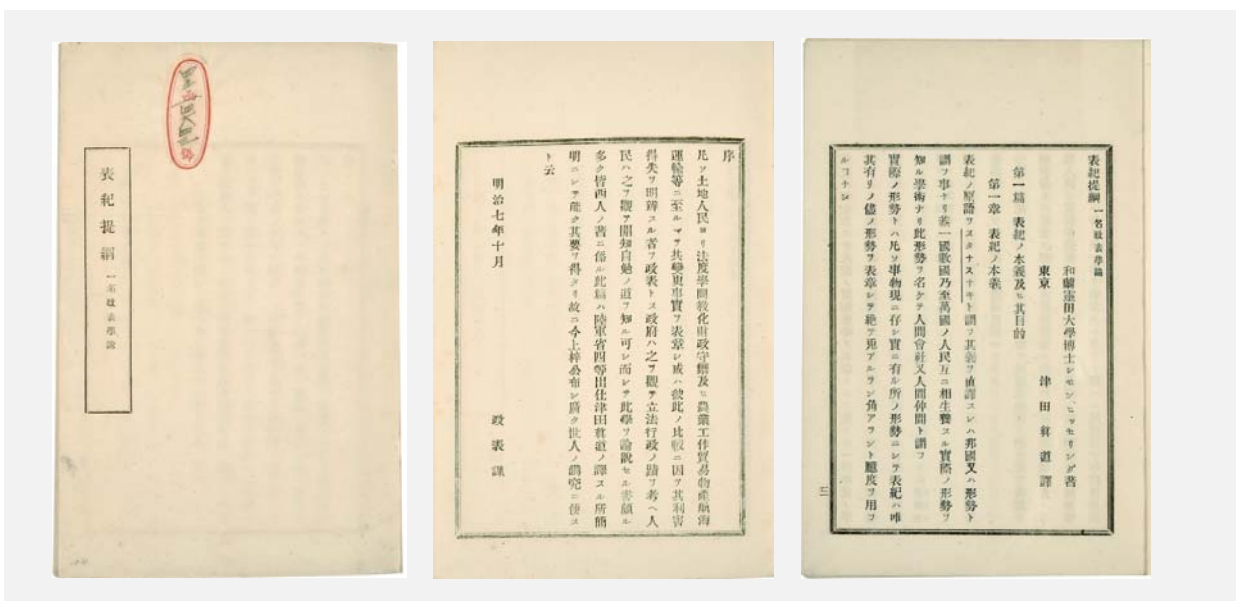 表紀提綱 一名政表學論
序
凡ソ土地人民ヨリ法度學問敎化財政守備及ヒ農業工作貿易物產航海
運輸等ニ至ルマテ其變更事實ヲ表章シ或ハ彼此ノ比較ニ因テ其利害
得失ヲ明辨スル者ヲ政表トス政府ハ之ヲ觀テ立法行政ノ蹟ヲ考ヘ人
民ハ之ヲ觀テ開知自勉ノ道ヲ知ル可シ而シテ此學ヲ論說セル書頗ル
多ク皆西人ノ著ニ係ル此篇ハ陸軍省四等出仕津田眞道ノ譯スル所簡
明ニシテ能ク其要ヲ得タリ故ニ今上梓公布シ廣ク世人ノ講究ニ便ス
ト云
明治七年十月
政表課
表紀提綱 一名政表學論
和蘭萊田大學博士シモン、ヒッセリング著
東京 津田眞道譯
第一篇 表紀ノ本義及ヒ其目的
第一章 表紀ノ本義
表紀ノ原語ヲスタチスチキト謂フ其義ヲ直譯スレハ邦國又ハ形勢ト
謂フ事ナリ蓋一國數國乃至萬國ノ人民互ニ相生養スル實際ノ形勢ヲ
知ル學術ナリ此形勢ヲ名ケテ人間會社又人間仲間ト謂フ
實際ノ形勢トハ凡ソ事物現ニ存シ實ニ有ル所ノ形勢ニシテ表紀ハ唯
其有リノ儘ノ形勢ヲ表章シテ絶テ兎アルラン角アラント臆度ヲ用フ
ルコナシ
三